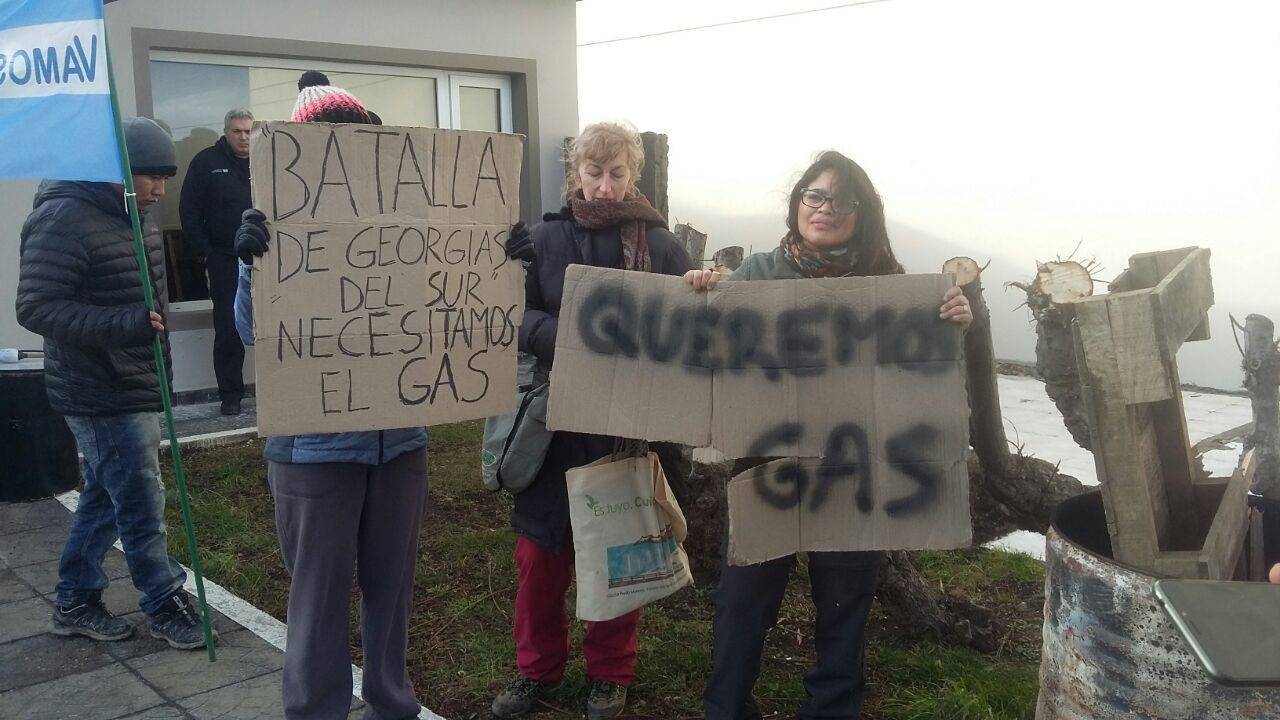 VAMOS
"BATALLA
DE GEORGIAS
DEL SUR"
NECESITAMOS
EL GAS
QUEREMOS
GAS
Es tuyo.